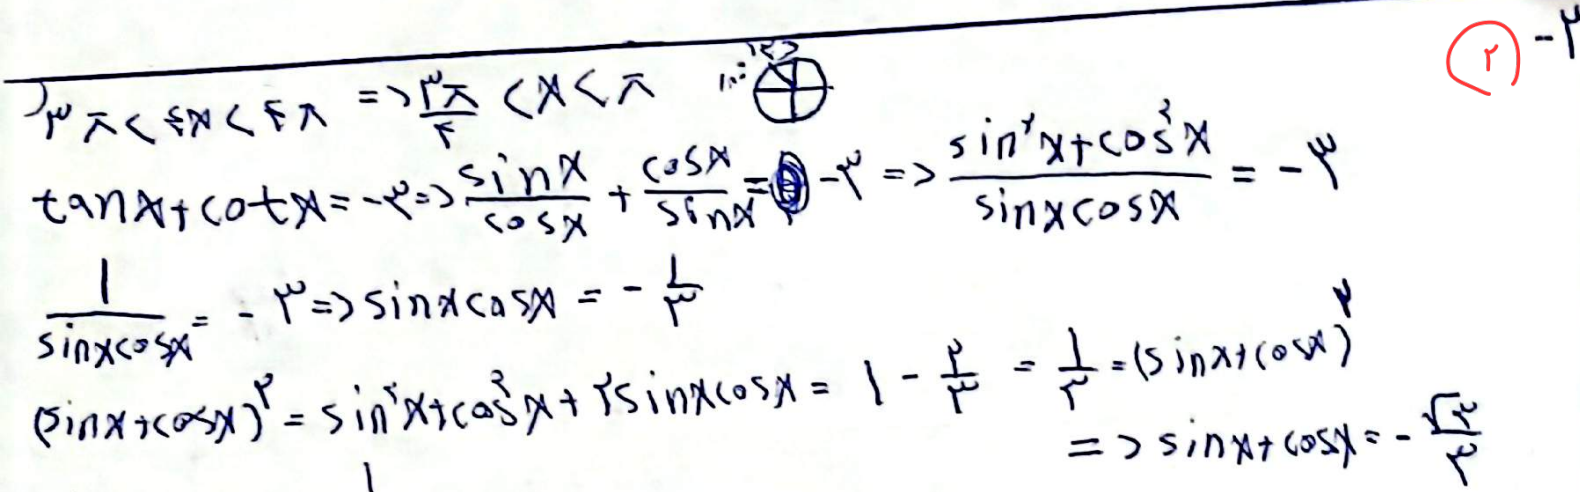 ۲ -۳
۳π < ۴x < ۴π => ۳π/۴ < x < π
tanx + cotx = -۳ => sinx/cosx + cosx/sinx = -۳ => sin²x + cos²x / sinxcosx = -۳
۱/sinxcosx = -۳ => sinxcosx = -۱/۳
(sinx + cosx)² = sin²x + cos²x + ۲sinxcosx = ۱ - ۲/۳ = ۱/۳ = (sinx + cosx)²
=> sinx + cosx = -√۳/۳